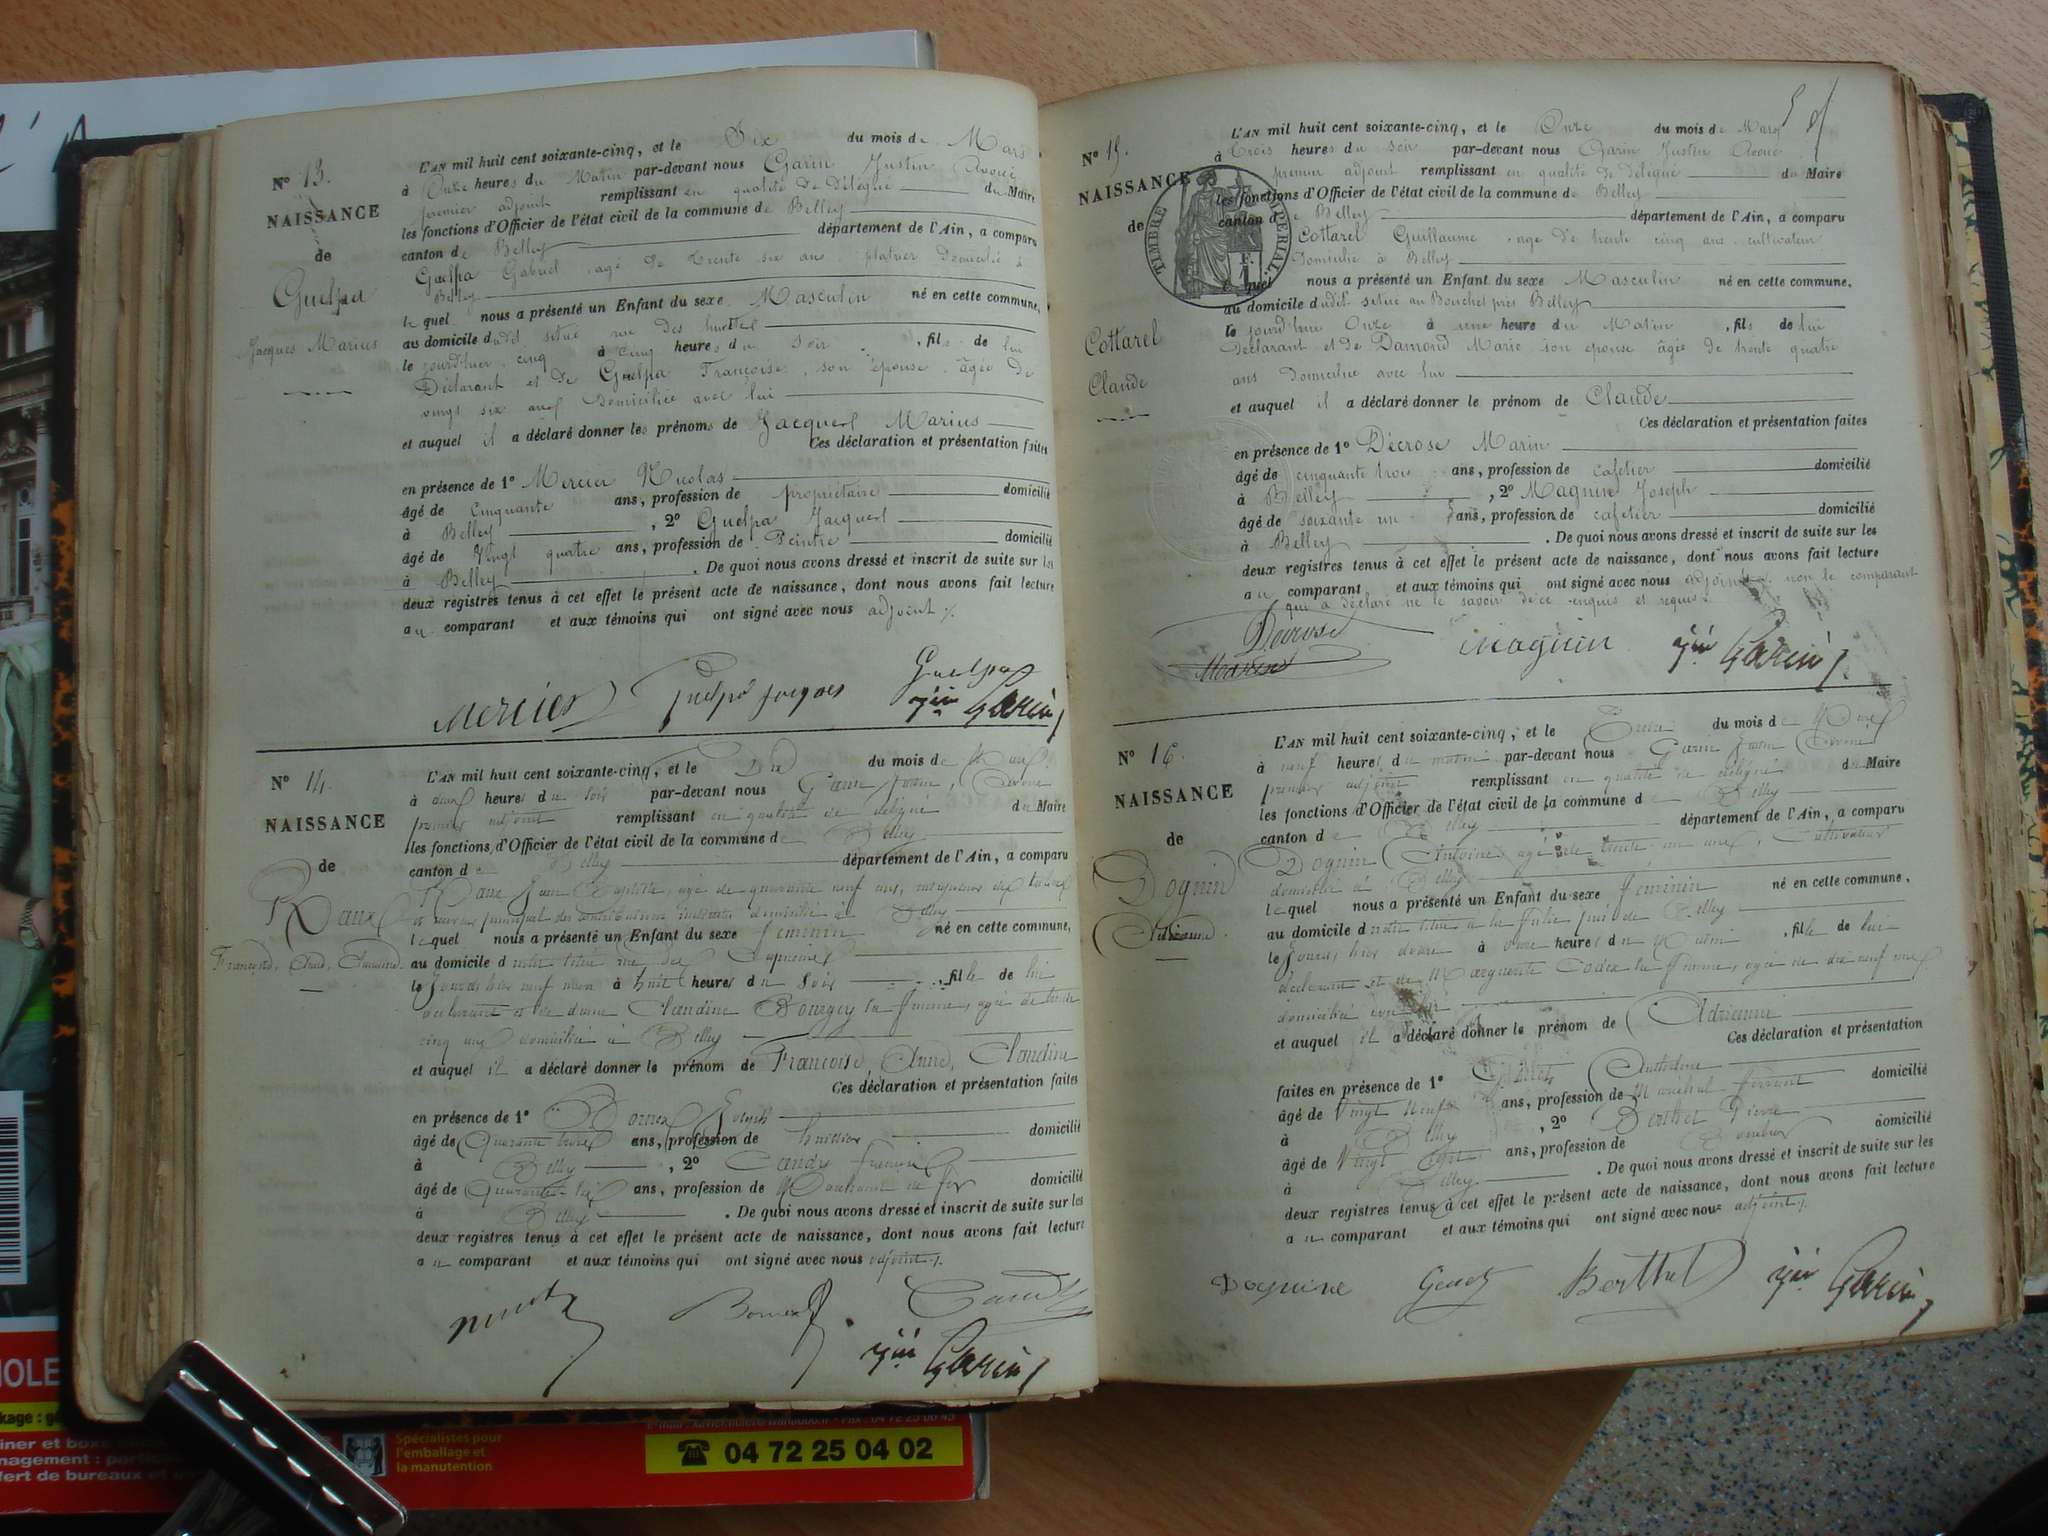 N° 13.
NAISSANCE
de
Guelpa
Jacques Marius
L'AN mil huit cent soixante-cinq, et le Six du mois de Mars
à Onze heures du Matin par-devant nous Garin Justin Avoué
premier adjoint remplissant en qualité de Délégué du Maire
les fonctions d'Officier de l'état civil de la commune de Belley
canton de Belley département de l'Ain, a comparu
Guelpa Gabriel, agé de trente six ans, platrier domicilié à
Belley
lequel nous a présenté un Enfant du sexe Masculin né en cette commune,
au domicile dudit situé rue des
le jourd'hier cinq à cinq heures du Soir, fils de lui
Déclarant et de Guelpa Françoise, son épouse, âgée de
vingt six ans domiciliée avec lui
et auquel il a déclaré donner les prénoms de Jacques Marius
Ces déclaration et présentation faites
en présence de 1° Mercier Nicolas
âgé de Cinquante ans, profession de propriétaire domicilié
à Belley, 2° Guelpa Jacques
âgé de Vingt quatre ans, profession de Peintre domicilié
à Belley. De quoi nous avons dressé et inscrit de suite sur les
deux registres tenus à cet effet le présent acte de naissance, dont nous avons fait lecture
au comparant et aux témoins qui ont signé avec nous adjoint
Mercier Guelpa Jacques Guelpa
Jin Garin
N° 14.
NAISSANCE
de
L'AN mil huit cent soixante-cinq, et le Dix du mois de Mars
à deux heures du soir par-devant nous Garin Justin, Avoué
premier adjoint remplissant en qualité de délégué du Maire
les fonctions d'Officier de l'état civil de la commune de Belley
canton de Belley département de l'Ain, a comparu
Jean Baptiste, agé de quarante neuf ans,
domicilié à Belley
lequel nous a présenté un Enfant du sexe féminin né en cette commune,
au domicile situé rue des Capucins
le jourd'hier neuf mars à huit heures du Soir, fille de lui
déclarant et de dame Claudine Bourgey sa femme, agée de trente
cinq ans domiciliée à Belley
et auquel il a déclaré donner le prénom de Françoise, Anne, Claudine
Ces déclaration et présentation faites
en présence de 1° Bornex Joseph
âgé de Quarante trois ans, profession de huissier domicilié
à Belley, 2° Candy François
âgé de Quarante-six ans, profession de Marchand de fer domicilié
à Belley. De quoi nous avons dressé et inscrit de suite sur les
deux registres tenus à cet effet le présent acte de naissance, dont nous avons fait lecture
au comparant et aux témoins qui ont signé avec nous adjoint
Bornex Candy
Jin Garin
N° 15.
NAISSANCE
de
Cottarel
Claude
TIMBRE IMPÉRIAL
L'AN mil huit cent soixante-cinq, et le Onze du mois de Mars
à trois heures du soir par-devant nous Garin Justin Avoué
premier adjoint remplissant en qualité de délégué du Maire
les fonctions d'Officier de l'état civil de la commune de Belley
canton de Belley département de l'Ain, a comparu
Cottarel Guillaume, agé de trente cinq ans, cultivateur
domicilié à Belley
lequel nous a présenté un Enfant du sexe Masculin né en cette commune,
au domicile dudit situé au Bouchet près Belley
le jourd'hui Onze à une heure du Matin, fils de lui
Déclarant et de Damond Marie son épouse âgée de trente quatre
ans domiciliée avec lui
et auquel il a déclaré donner le prénom de Claude
Ces déclaration et présentation faites
en présence de 1° Décrose Marin
âgé de cinquante trois ans, profession de cafetier domicilié
à Belley, 2° Magnin Joseph
âgé de soixante un ans, profession de cafetier domicilié
à Belley. De quoi nous avons dressé et inscrit de suite sur les
deux registres tenus à cet effet le présent acte de naissance, dont nous avons fait lecture
au comparant et aux témoins qui ont signé avec nous adjoint, non le comparant
qui a déclaré ne le savoir de ce enquis et requis.
Décrose Magnin Jin Garin
Marin
N° 16.
NAISSANCE
de
Doguin
Adrienne
L'AN mil huit cent soixante-cinq, et le Treize du mois de Mars
à neuf heures du matin par-devant nous Garin Justin Avoué
premier adjoint remplissant en qualité de délégué du Maire
les fonctions d'Officier de l'état civil de la commune de Belley
canton de Belley département de l'Ain, a comparu
Doguin Antoine, agé de trente un ans, Cultivateur
domicilié à Belley
lequel nous a présenté un Enfant du sexe féminin né en cette commune,
au domicile situé à la près de Belley
le jourd'hier douze à onze heures du Matin, fille de lui
déclarant et de Marguerite Codex sa femme, agée de dix neuf ans
domiciliée avec lui
et auquel il a déclaré donner le prénom de Adrienne
Ces déclaration et présentation
faites en présence de 1° Anthelme
âgé de Vingt neuf ans, profession de Maréchal-ferrant domicilié
à Belley, 2° Berthet Pierre
âgé de Vingt sept ans, profession de domicilié
à Belley. De quoi nous avons dressé et inscrit de suite sur les
deux registres tenus à cet effet le présent acte de naissance, dont nous avons fait lecture
au comparant et aux témoins qui ont signé avec nous adjoint
Berthet Jin Garin
Spécialistes pour
l'emballage et
la manutention
☎ 04 72 25 04 02